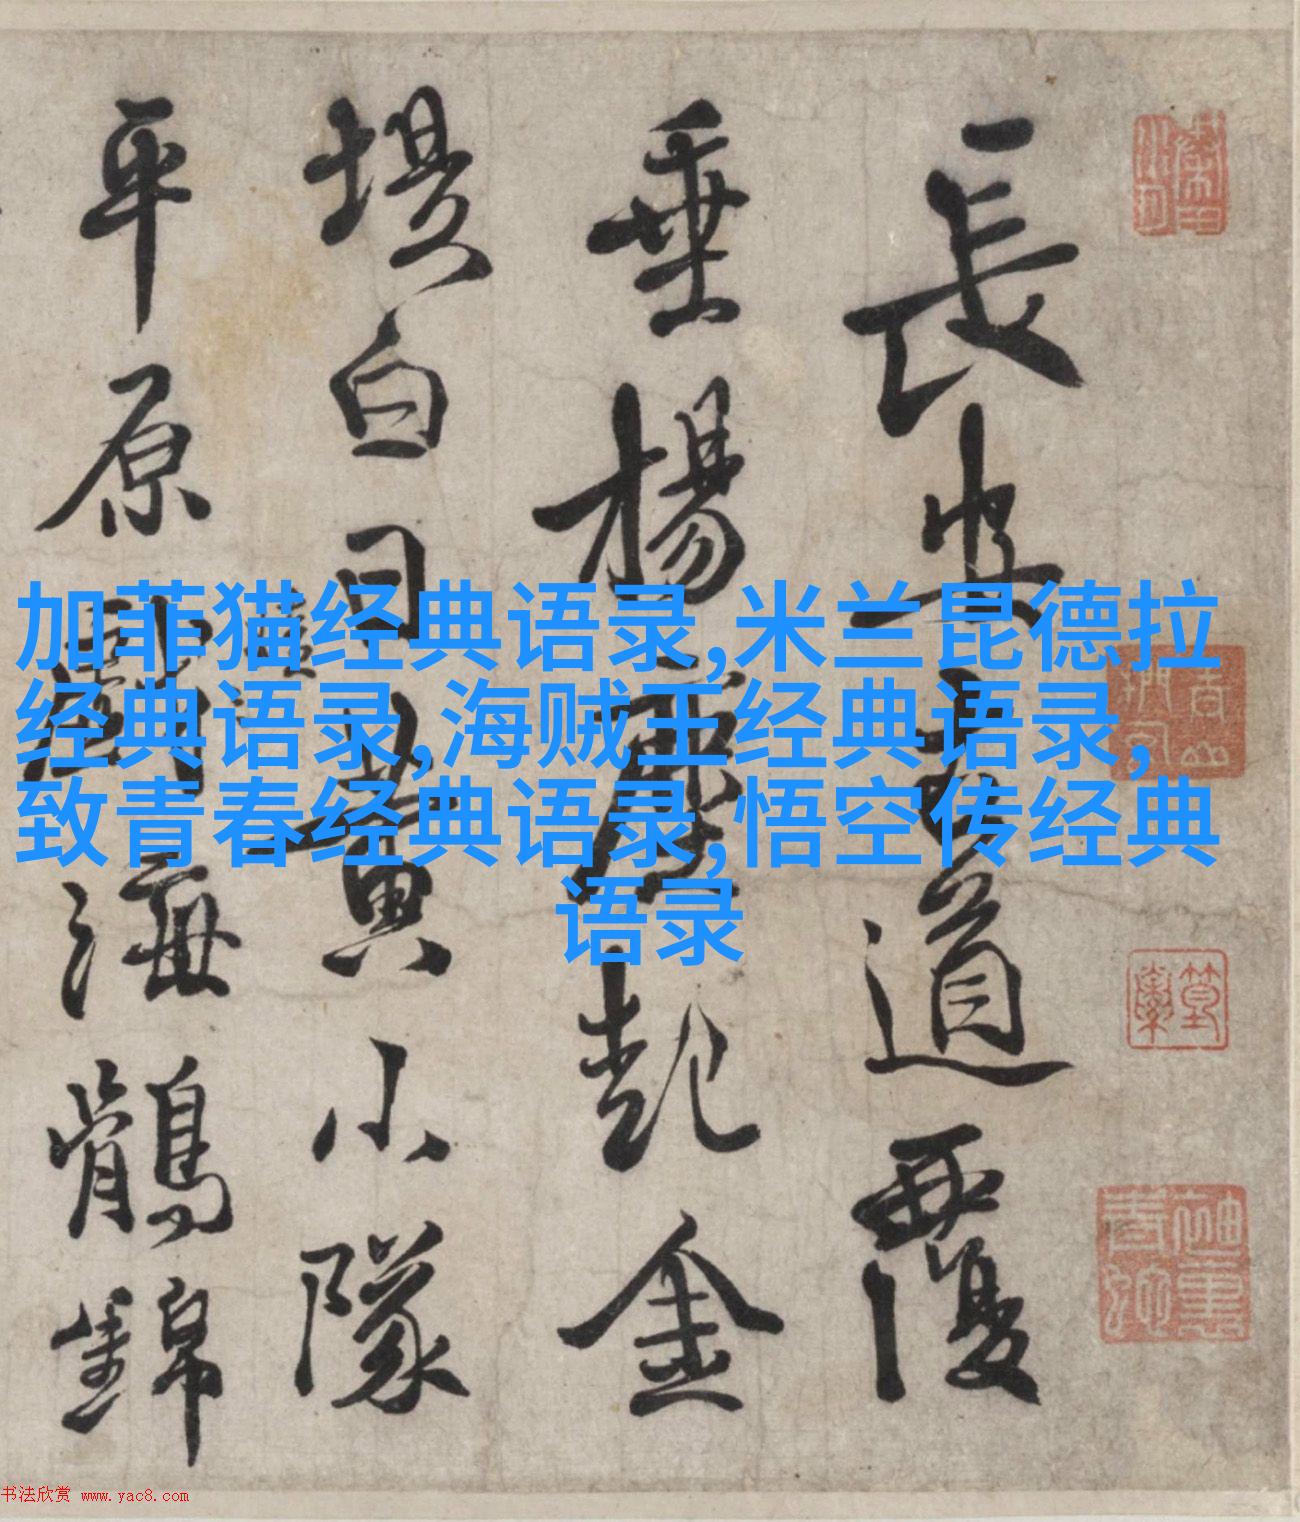 長安道覆
垂楊起金
堤白日黃小隊
平原海鶻錦
加菲猫经典语录,米兰昆德拉
经典语录,海贼王经典语录,
致青春经典语录,悟空传经典
语录
书法欣赏 www.yac8.com